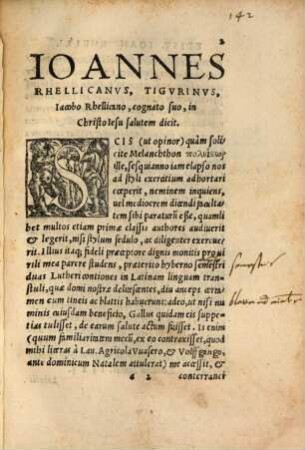 142
2
IOANNES
RHELLICANVS, TIGVRINVS,
Iacobo Rhellicano, cognato suo, in
Christo Iesu salutem dicit.
SCIS (ut opinor) quàm soli
cite Melanchthon
ille, sesquianno iam elapso nos
ad styli exercitium adhortari
cœperit, neminem inquiens,
uel mediocrem dicendi facultatem
sibi paraturũ esse, quamli
bet multos etiam primæ classis authores audiuerit
& legerit, nisi stylum sedulo, ac diligenter exercue
rit. Illius itaq; fideli præceptore dignis monitis pro qui
rili mea parere studens, præterito hyberno semestri
duas Lutheri contiones in Latinam linguam trans
tuli, quæ domi nostræ delitescentes, diu anceps certa
men cum tineis ac blattis habuerunt: adeo, ut nisi nu
minis eiusdam beneficio, Gallus quidam eis suppe
tias tulisset, de earum salute actum fuisset. Is enim
(quum familiaritatem mecũ, ex eo contraxisset, quod
mihi literas à Lau. Agricola Vuasero, & Volffgango,
ante dominicum Natalem attulerat) me accessit, &
6 2 conterranei